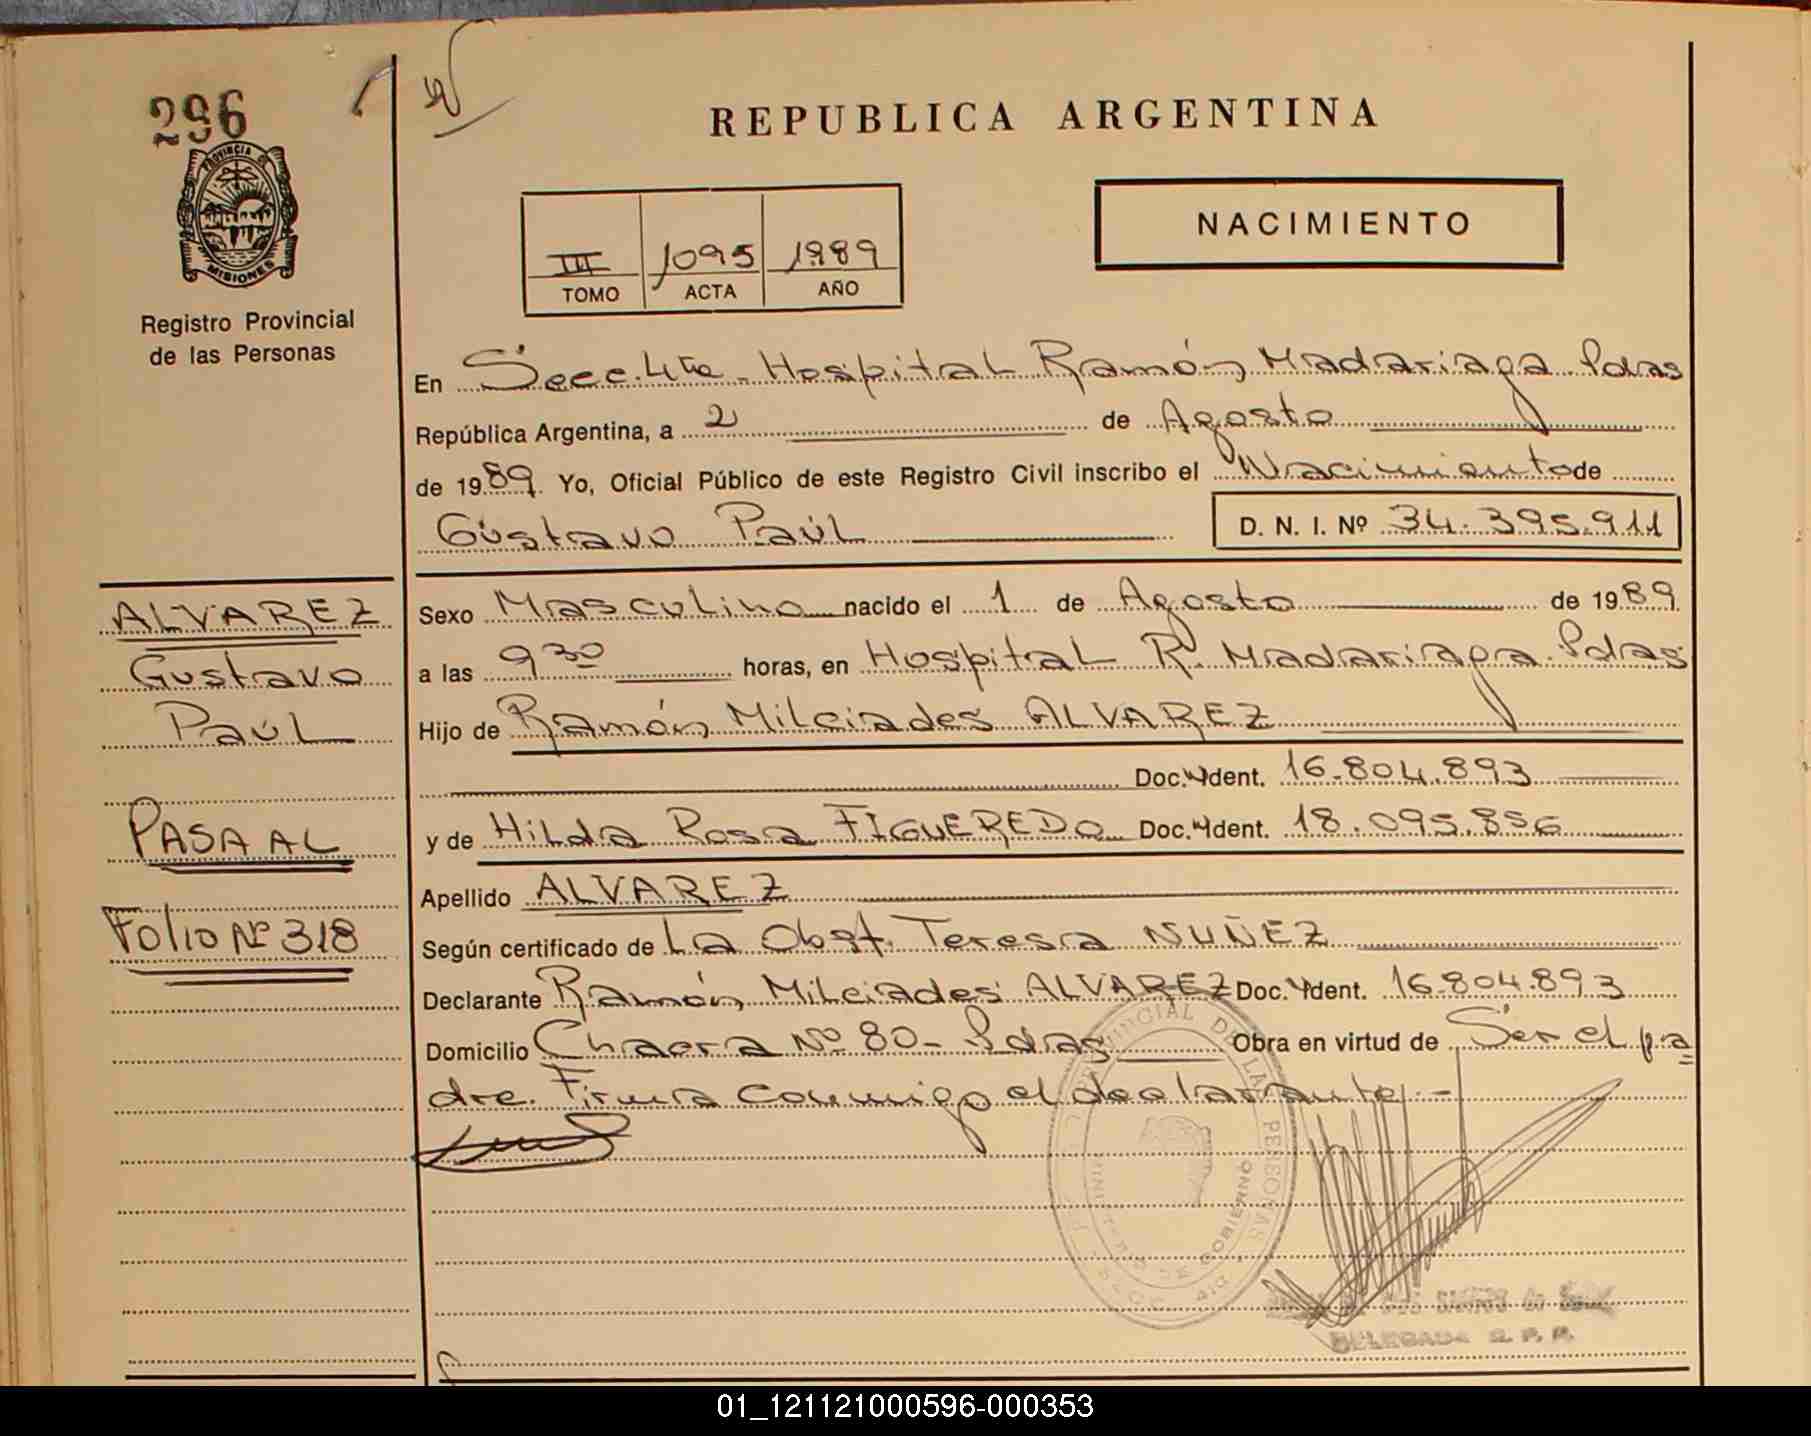 296
PROVINCIA DE
MISIONES
Registro Provincial
de las Personas
REPUBLICA ARGENTINA
NACIMIENTO
III 1095 1989
TOMO ACTA AÑO
En Secc. 4ta - Hospital Ramón Madariaga Pdas
República Argentina, a 2 de Agosto
de 1989. Yo, Oficial Público de este Registro Civil inscribo el Nacimiento de
Gustavo Paúl D. N. I. Nº 34.395.911
ALVAREZ
Gustavo
Paúl
PASA AL
Folio Nº 318
Sexo Masculino nacido el 1 de Agosto de 1989
a las 9 30 horas, en Hospital R. Madariaga. Pdas
Hijo de Ramón Milciades ALVAREZ
Doc. Ident. 16.804.893
y de Hilda Rosa FIGUEREDO Doc. Ident. 18.095.856
Apellido ALVAREZ
Según certificado de La Obst. Teresa NUÑEZ
Declarante Ramón Milciades ALVAREZ Doc. Ident. 16.804.893
Domicilio Chacra Nº 80 - Pdas Obra en virtud de Ser el pa
dre. Firma conmigo el declarante.-
PROVINCIAL DE LAS PERSONAS
DE GOBIERNO
DELEGADA R. P. P.
01_121121000596-000353